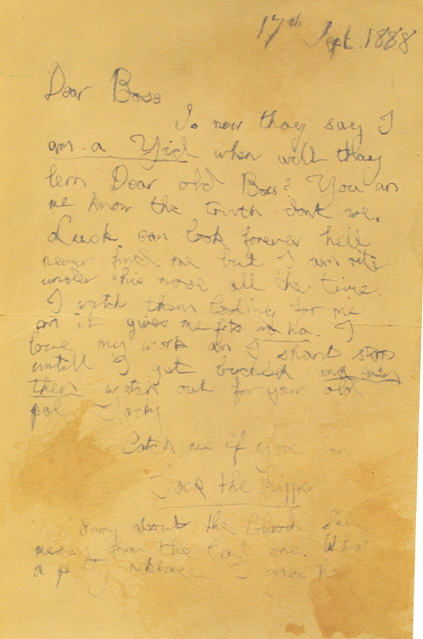 17th Sept 1888
Dear Boss
So now they say I
am a Yid when will they
lern Dear old Boss? You an
me know the truth dont we.
Lusk can look forever hell
never find me but I am rite
under his nose all the time.
I watch them looking for me
an it gives me fits ha ha. I
love my work an I shant stop
untill I get buckled and even
then watch out for your old
pal Jacky
Catch me if you
Jack the Ripp
Sorry about the blood still
messy from the last one. What
a pretty necklace I gave her